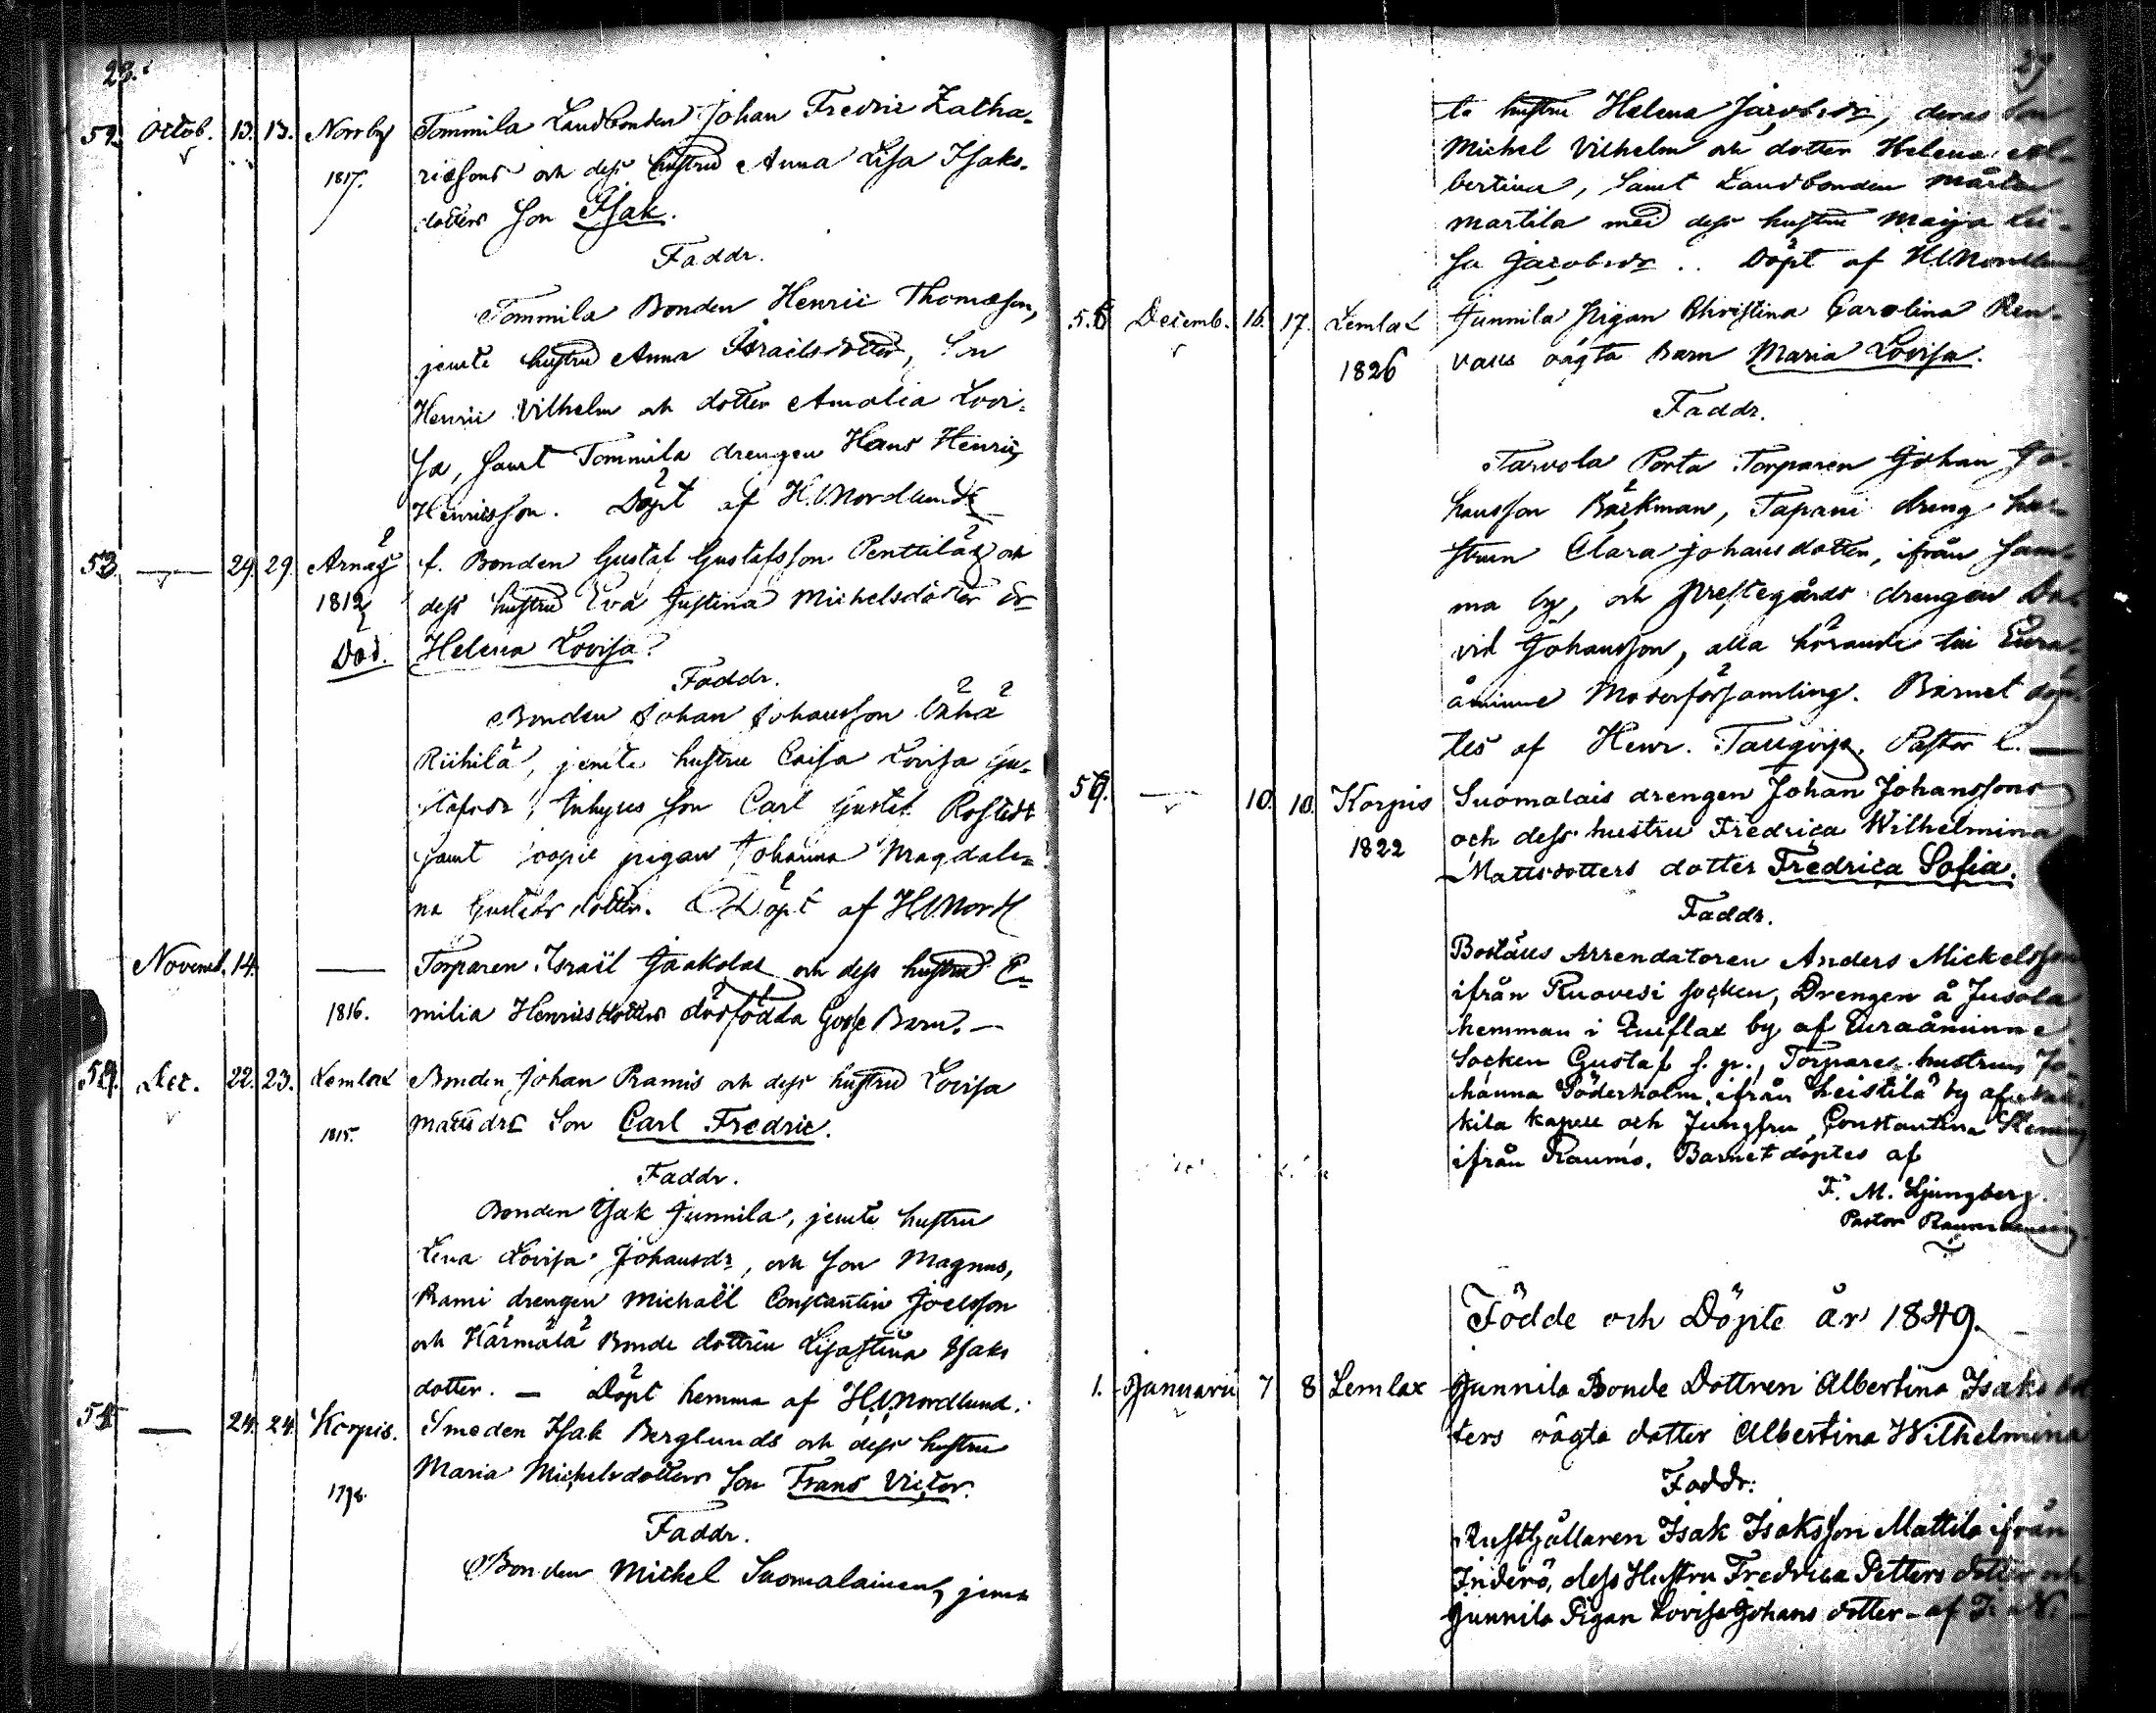 28.
52. Octob. 13. 13. Norrby Tommila Landbonden Johan Fredric Zacha-
1817. riæsons och dess hustru Anna Lisa Isaks-
dotters Son Isak.
Faddr.
Tommila Bonden Henric Thomæson,
jemte hustru Anna Israelsdotter, Son
Henric Vilhelm och dotter Amalia Lovi-
sa, samt Tommila drengen Hans Henric
Henricsson. Döpt af H.U.Nordlund
53. — 29. 29. Arnäs f. Bonden Gustaf Gustafsson Penttilä och
1812 dess hustru Eva Justina Michelsdotter dr
Död. Helena Lovisa.
Faddr.
Bonden Johan Johansson Vähä
Riihilä, jemte hustru Caisa Lovisa Gu-
stafsdr, Inhyses Son Carl Gustaf Rostedt
samt pigan Johanna Magdale-
na Gustafsdotter. Döpt af H.U.Nordl
Novemb. 14. — Torparen Israël Jaakolas och dess hustru E-
1816. milia Henricsdotters dödfödda Gosse Barn. —
54. Dec. 22. 23. Lemlax Bonden Johan Pramis och dess hustru Lovisa
1815. Mattsdrs Son Carl Fredric.
Faddr.
Bonden Isak Junnila, jemte hustru
Lena Lovisa Johansdr, och Son Magnus,
Prami drengen Michaël Constantin Joelsson
och Härmälä Bonde dottren Lisastina Isaks
dotter. — Döpt hemma af H.U.Nordlund.
55. — 24. 24. Korpis. Smeden Isak Berglunds och dess hustru
Maria Michelsdotters Son Frans Victor.
1798.
Faddr.
Bonden Michel Suomalainen, jem-
29
te hustru Helena Jacobsdr, deras Son
Michel Vilhelm och dotter Helena Al-
bertina, samt Landbonden Mårten
Martila med dess hustru Maija Lii-
sa Jacobsdr. Döpt af H.U.Nordlund
56. Decemb. 16. 17. Lemlax Junnila Pigan Christina Carolina Ren-
1826 vals oägta Barn Maria Lovisa.
Faddr.
Tarvola Porta Torparen Johan Jo-
hansson Bäckman, Tapani dreng hu-
strun Clara Johansdotter, ifrån sam-
ma by, och Prestegårds drengen Da-
vid Johansson, alla hörande till Eura-
åminne Moderförsamling. Barnet döp-
tes af Henr. Tallqvist. Pastor l. —
57. — 10. 10. Korpis Suomalais drengen Johan Johanssons
1822 och dess hustru Fredrica Wilhelmina
Mattsdotters dotter Fredrica Sofia.
Faddr.
Boställs Arrendatoren Anders Mickelsson
ifrån Ruovesi socken, Drengen å Jusola
hemman i by af Euraåminne
Socken Gustaf f. gr., Torpare hustrun Jo-
hanna Söderholm, ifrån Leistilä by af
kila kapell och Jungfru Constantina
ifrån Raumo. Barnet döptes af
F. M. Ljungberg.
Pastor
Födde och Döpte år 1849.
1. Januarii 7 8 Lemlax Junnila Bonde Dottren Albertina Isaks do-
ters oägta dotter Albertina Wilhelmina
Faddr:
Rusthållaren Isak Isaksson Mattila ifrån
Inderö, dess Hustru Fredrica Petters dotter och
Junnila Pigan Lovisa Johans dotter - af